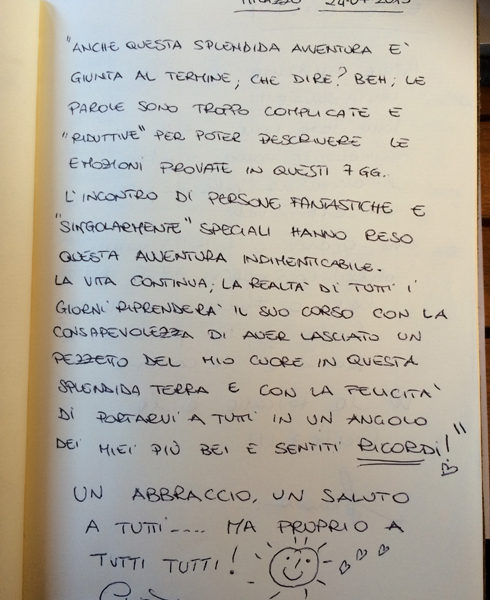 MILAZZO 24-07-2015
"ANCHE QUESTA SPLENDIDA AVVENTURA E'
GIUNTA AL TERMINE; CHE DIRE? BEH; LE
PAROLE SONO TROPPO COMPLICATE E
"RIDUTTIVE" PER POTER DESCRIVERE LE
EMOZIONI PROVATE IN QUESTI 7 GG.
L'INCONTRO DI PERSONE FANTASTICHE E
"SINGOLARMENTE" SPECIALI HANNO RESO
QUESTA AVVENTURA INDIMENTICABILE.
LA VITA CONTINUA; LA REALTA' DI TUTTI I
GIORNI RIPRENDERA' IL SUO CORSO CON LA
CONSAPEVOLEZZA DI AVER LASCIATO UN
PEZZETTO DEL MIO CUORE IN QUESTA
SPLENDIDA TERRA E CON LA FELICITA'
DI PORTARVI A TUTTI IN UN ANGOLO
DEI MIEI PIÙ BEI E SENTITI RICORDI!"
UN ABBRACCIO, UN SALUTO
A TUTTI---- MA PROPRIO A
TUTTI TUTTI!